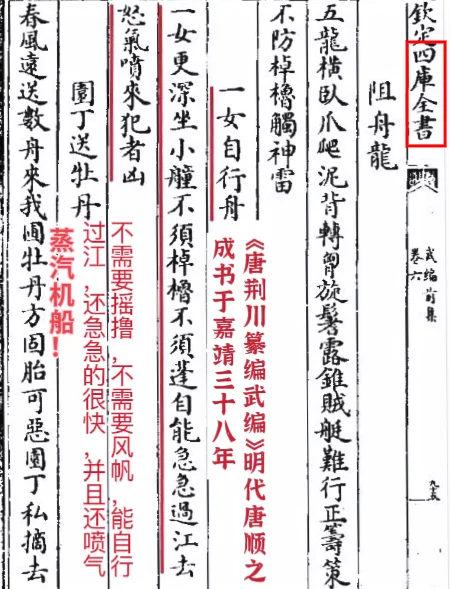 欽定四庫全書
武編前集
卷六
阻舟龍
五龍橫臥爪爬泥背轉胷旋鬐露錐賊艇難行正籌策
不防棹櫓觸神雷
一女自行舟
《唐荆川纂编武编》明代唐顺之
成书于嘉靖三十八年
一女更深坐小艟不須棹櫓不須蓬自能急急過江去
怒氣噴來犯者凶
不需要摇撸,不需要风帆,能自行
过江,还急急的很快,并且还喷气
蒸汽机船!
園丁送牡丹
春風遠送數舟來我圃牡丹方固胎可惡園丁私摘去